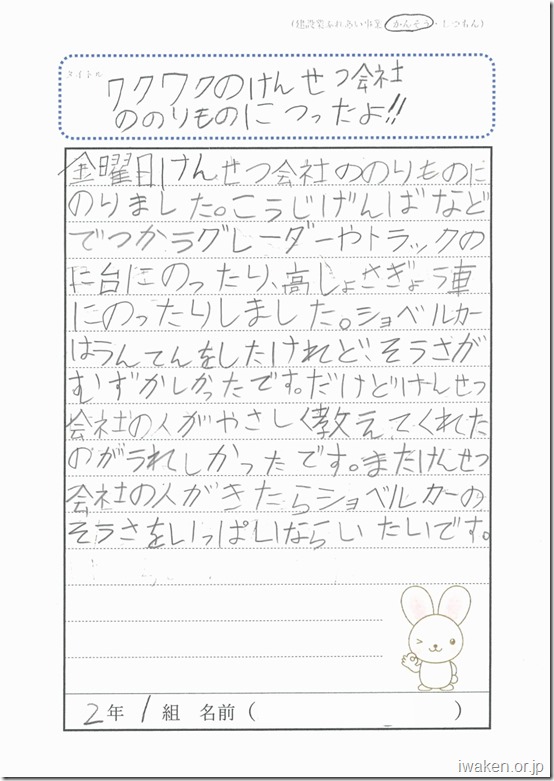 (建設業ふれあい事業 かんそう・しつもん)
タイトル
ワクワクのけんせつ会社
ののりものにのったよ!!
金曜日けんせつ会社ののりものに
のりました。こうじげんばなど
でつかうグレーダーやトラックの
に台にのったり、高しょさぎょう車
にのったりしました。ショベルカー
はうんてんをしたけれど、そうさが
むずかしかったです。だけどけんせつ
会社の人がやさしく教えてくれた
のがうれしかったです。またけんせつ
会社の人がきたらショベルカーの
そうさをいっぱいならいたいです。
2年 1組 名前( )
iwaken.or.jp